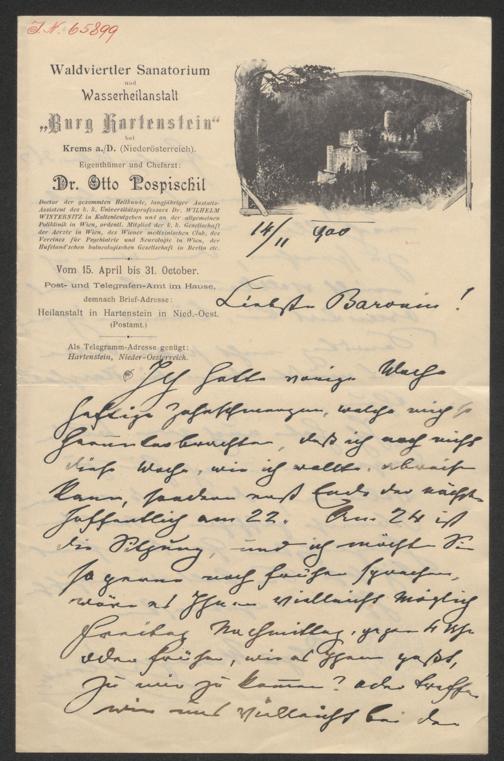 J.N. 65899
Waldviertler Sanatorium
und
Wasserheilanstalt
„Burg Hartenstein“
bei
Krems a./D. (Niederösterreich).
Eigenthümer und Chefarzt:
Dr. Otto Pospischil
Doctor der gesammten Heilkunde, langjähriger Anstalts-
Assistent des k. k. Universitätsprofessors Dr. WILHELM
WINTERNITZ in Kaltenleutgeben und an der allgemeinen
Poliklinik in Wien, ordentl. Mitglied der k. k. Gesellschaft
der Aerzte in Wien, des Wiener medicinischen Club, des
Vereines für Psychiatrie und Neurologie in Wien, der
Hufeland'schen balneologischen Gesellschaft in Berlin etc.
Vom 15. April bis 31. October.
Post- und Telegrafen-Amt im Hause,
demnach Brief-Adresse:
Heilanstalt in Hartenstein in Nied.-Oest.
(Postamt.)
Als Telegramm-Adresse genügt:
Hartenstein, Nieder-Oesterreich.
14/11 900
Liebste Baronin!
Ich hatte vorige Woche
heftige Zahnschmerzen, welche mich so
herunterbrachten, daß ich noch nicht
diese Woche, wie ich wollte, abreisen
kann, sondern erst Ende der nächsten
hoffentlich am 22. Am 24 ist
die Sitzung, und ich möchte Sie
so gerne noch früher sprechen,
wäre es Ihnen vielleicht möglich
Freitag Nachmittag, gegen 4 Uhr
oder früher, wie es Ihnen paßt,
zu mir zu kommen? oder treffen
wir uns vielleicht bei der